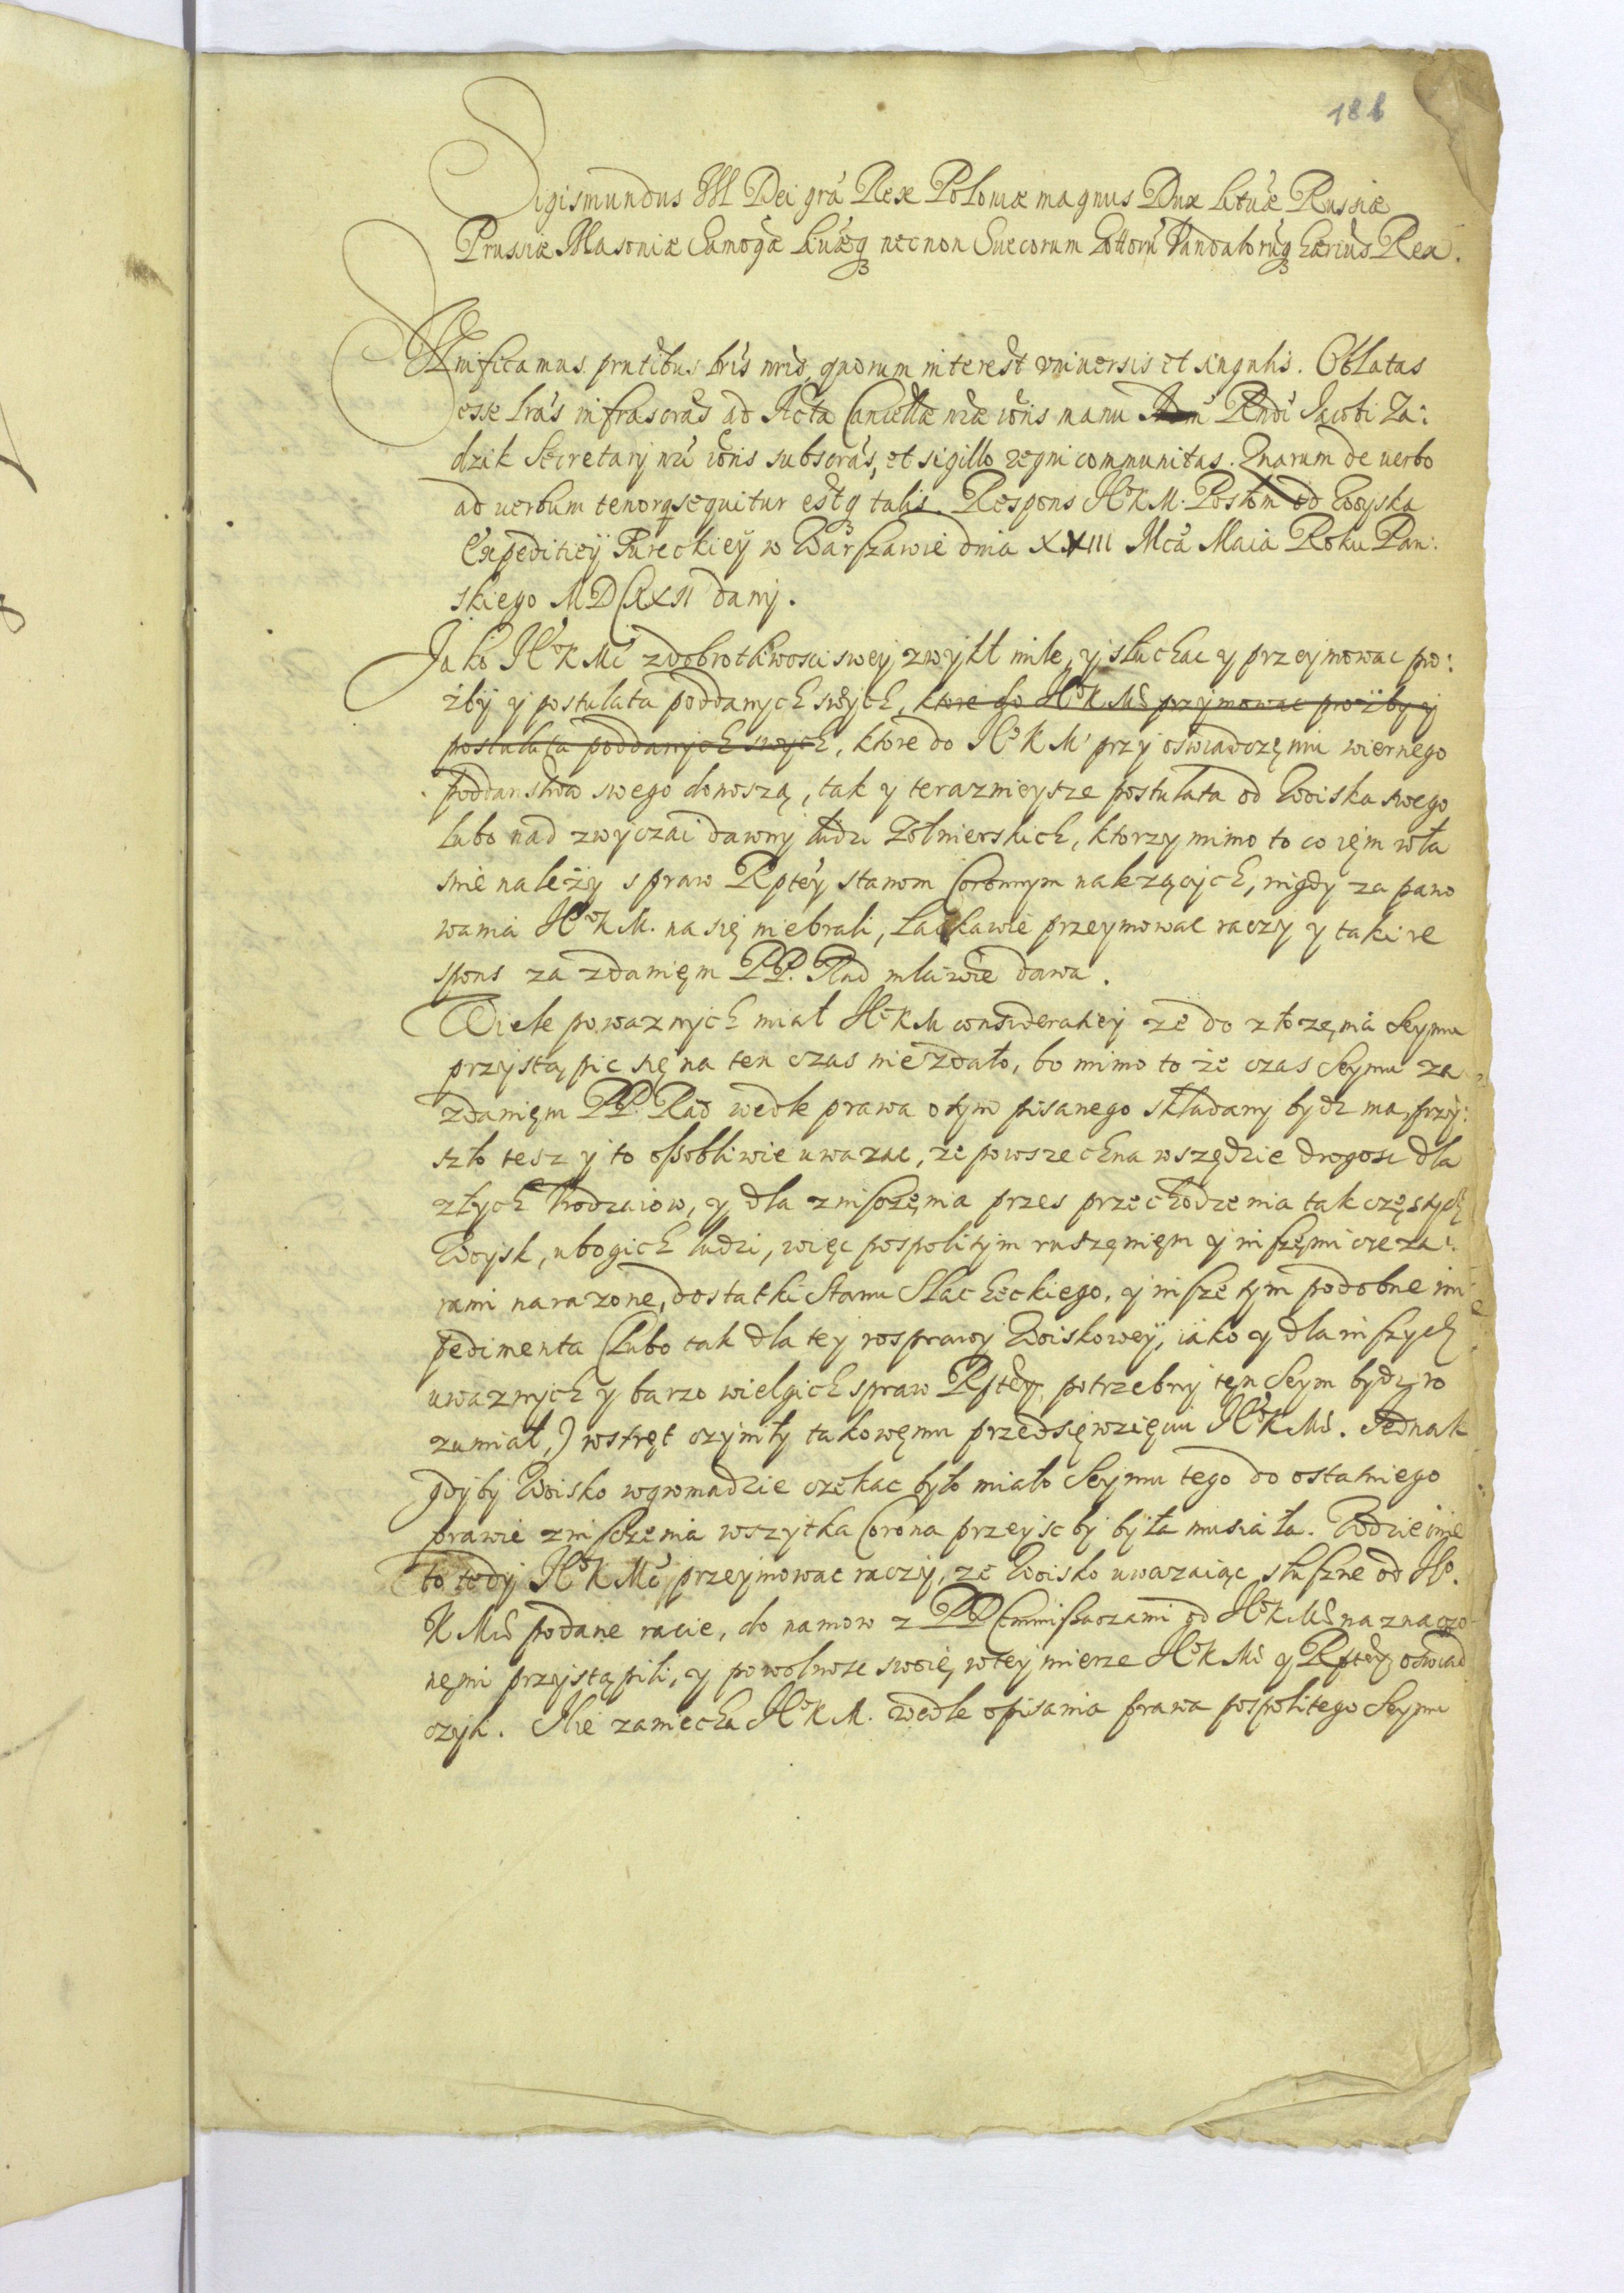 186
Sigismundus III Dei grã Rex Poloniæ magnus Dux Lituæ Russiæ
Prussiæ Masoniæ Samogæ Livæq necnon Suecorum Gottorũ Vandalorũq hærius Rex.
Significamus pntibus lris nris, quorum interest vniuersis et singulis. Oblatas
esse lras infrascras ad Acta Cancellæ nræ ionis manu Rndi Jacobi Za:
dzik Secretarij nri ionis subscras, et sigillo regni communitas. Quarum de uerbo
ad uerbum tenor sequitur estq talis. Respons JoKM. Posłom od Woyska
Expeditiey Tureckiey w Warszawie dnia XXIII Mca Maia Roku Pan:
skiego MDCXXII dany.
Jako JoK Mć z dobrotliwosci swey zwykł mile, y słuchac y przeymowac pro:
żby y postulata poddanych swych, ktore do JoK Mć przymowac prożby y
postulata poddanych swych, ktore do JoK M przy oświadczęniu wiernego
poddanstwa swego donoszą, tak y teraznieysze postulata od Woiska swego
lubo nad zwyczai dawny ludzi Zołnierskich, ktorzy mimo to co ięm wła
snie należy spraw Rptey stanom Coronnym nalezących, nigdy za pano
wania JoKM. na się niebrali, łaskawie przeymowac raczy y taki re
spons za zdanięm PP. Rad mlciwie dawa.
Wiele powaznych miał JoKM consideratiey ze do złozęnia Seymu
przystąpic się na ten czas nie zdało, bo mimo to że czas Seymu za
zdanięm PP. Rad wedle prawa o tym pisanego składany bydz ma, przy:
szło tesz y to ossobliwie uwazac, ze powszechna wszędzie drogosc dla
złych Vrodzaiow, y dla zniszczęnia przes przechodzenia tak częstych
Woysk, ubogich ludzi, więc pospolitym ruszęnięm y inszęmi cięza:
rami narazone, dostatki Stanu Slacheckiego, y insze tym podobne im
pedimenta (Lubo tak dla tey rosprawy Woiskowey, iako y dla inszych
uwaznych y barzo wielgich spraw Rptey potrzebny ten Seym bydz ro
zumiał,) wstręt czyniły takowęmu przedsięwzięciu JoK Mć. Jednak
gdyby Woisko w gromadzie czekac było miało Seymu tego do ostatniego
prawie zniszczenia wszytka Corona przeysc by była musiała. Wdziecznie
to tedy JoK Mć przeymowac raczy, ze Woisko uwazaiąc słuszne od Jo.
K Mć podane racie, do namow z PP Commissarzami od JoKMć naznaczo
nęmi przystąpili, y powolnosc swoię w tey mierze JoK Mć y Rptey oswiad
czyli. Nie zaniecha JoKM. wedle opisania prawa pospolitego Seymu